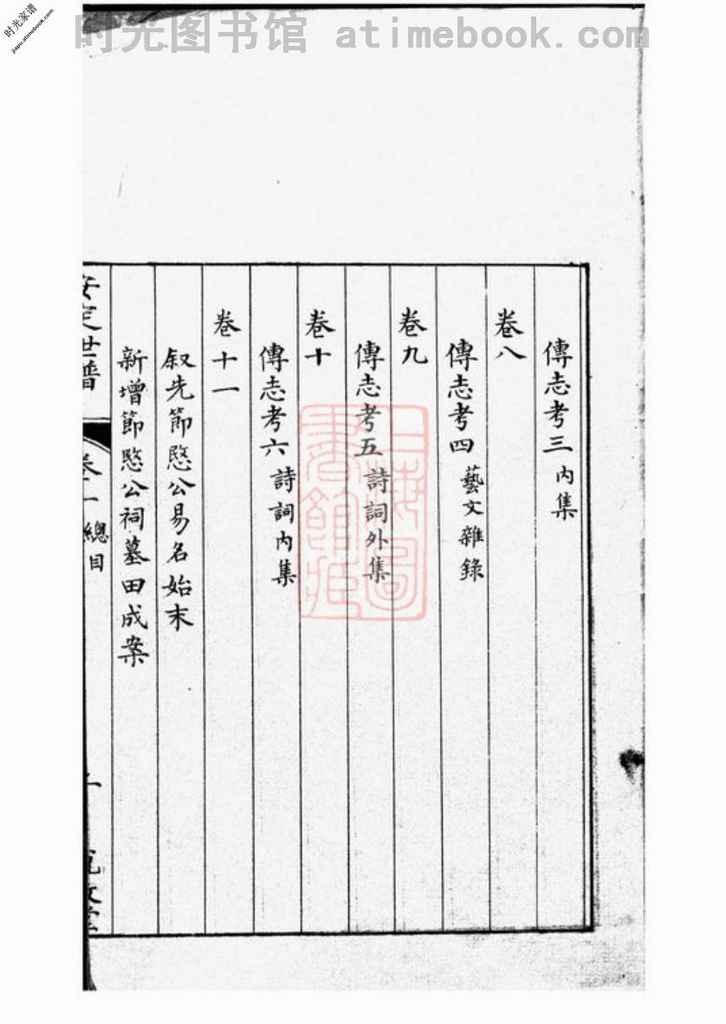 时光图书馆 atimebook.com
时光家谱
jiapu.atimebook.com
傳志考三 内集
卷八
傳志考四 藝文雜錄
卷九
傳志考五 詩詞外集
卷十
傳志考六 詩詞内集
卷十一
叙先節愍公易名始末
新增節愍公祠墓田成案
安定世譜
卷一 總目
上海圖書館藏